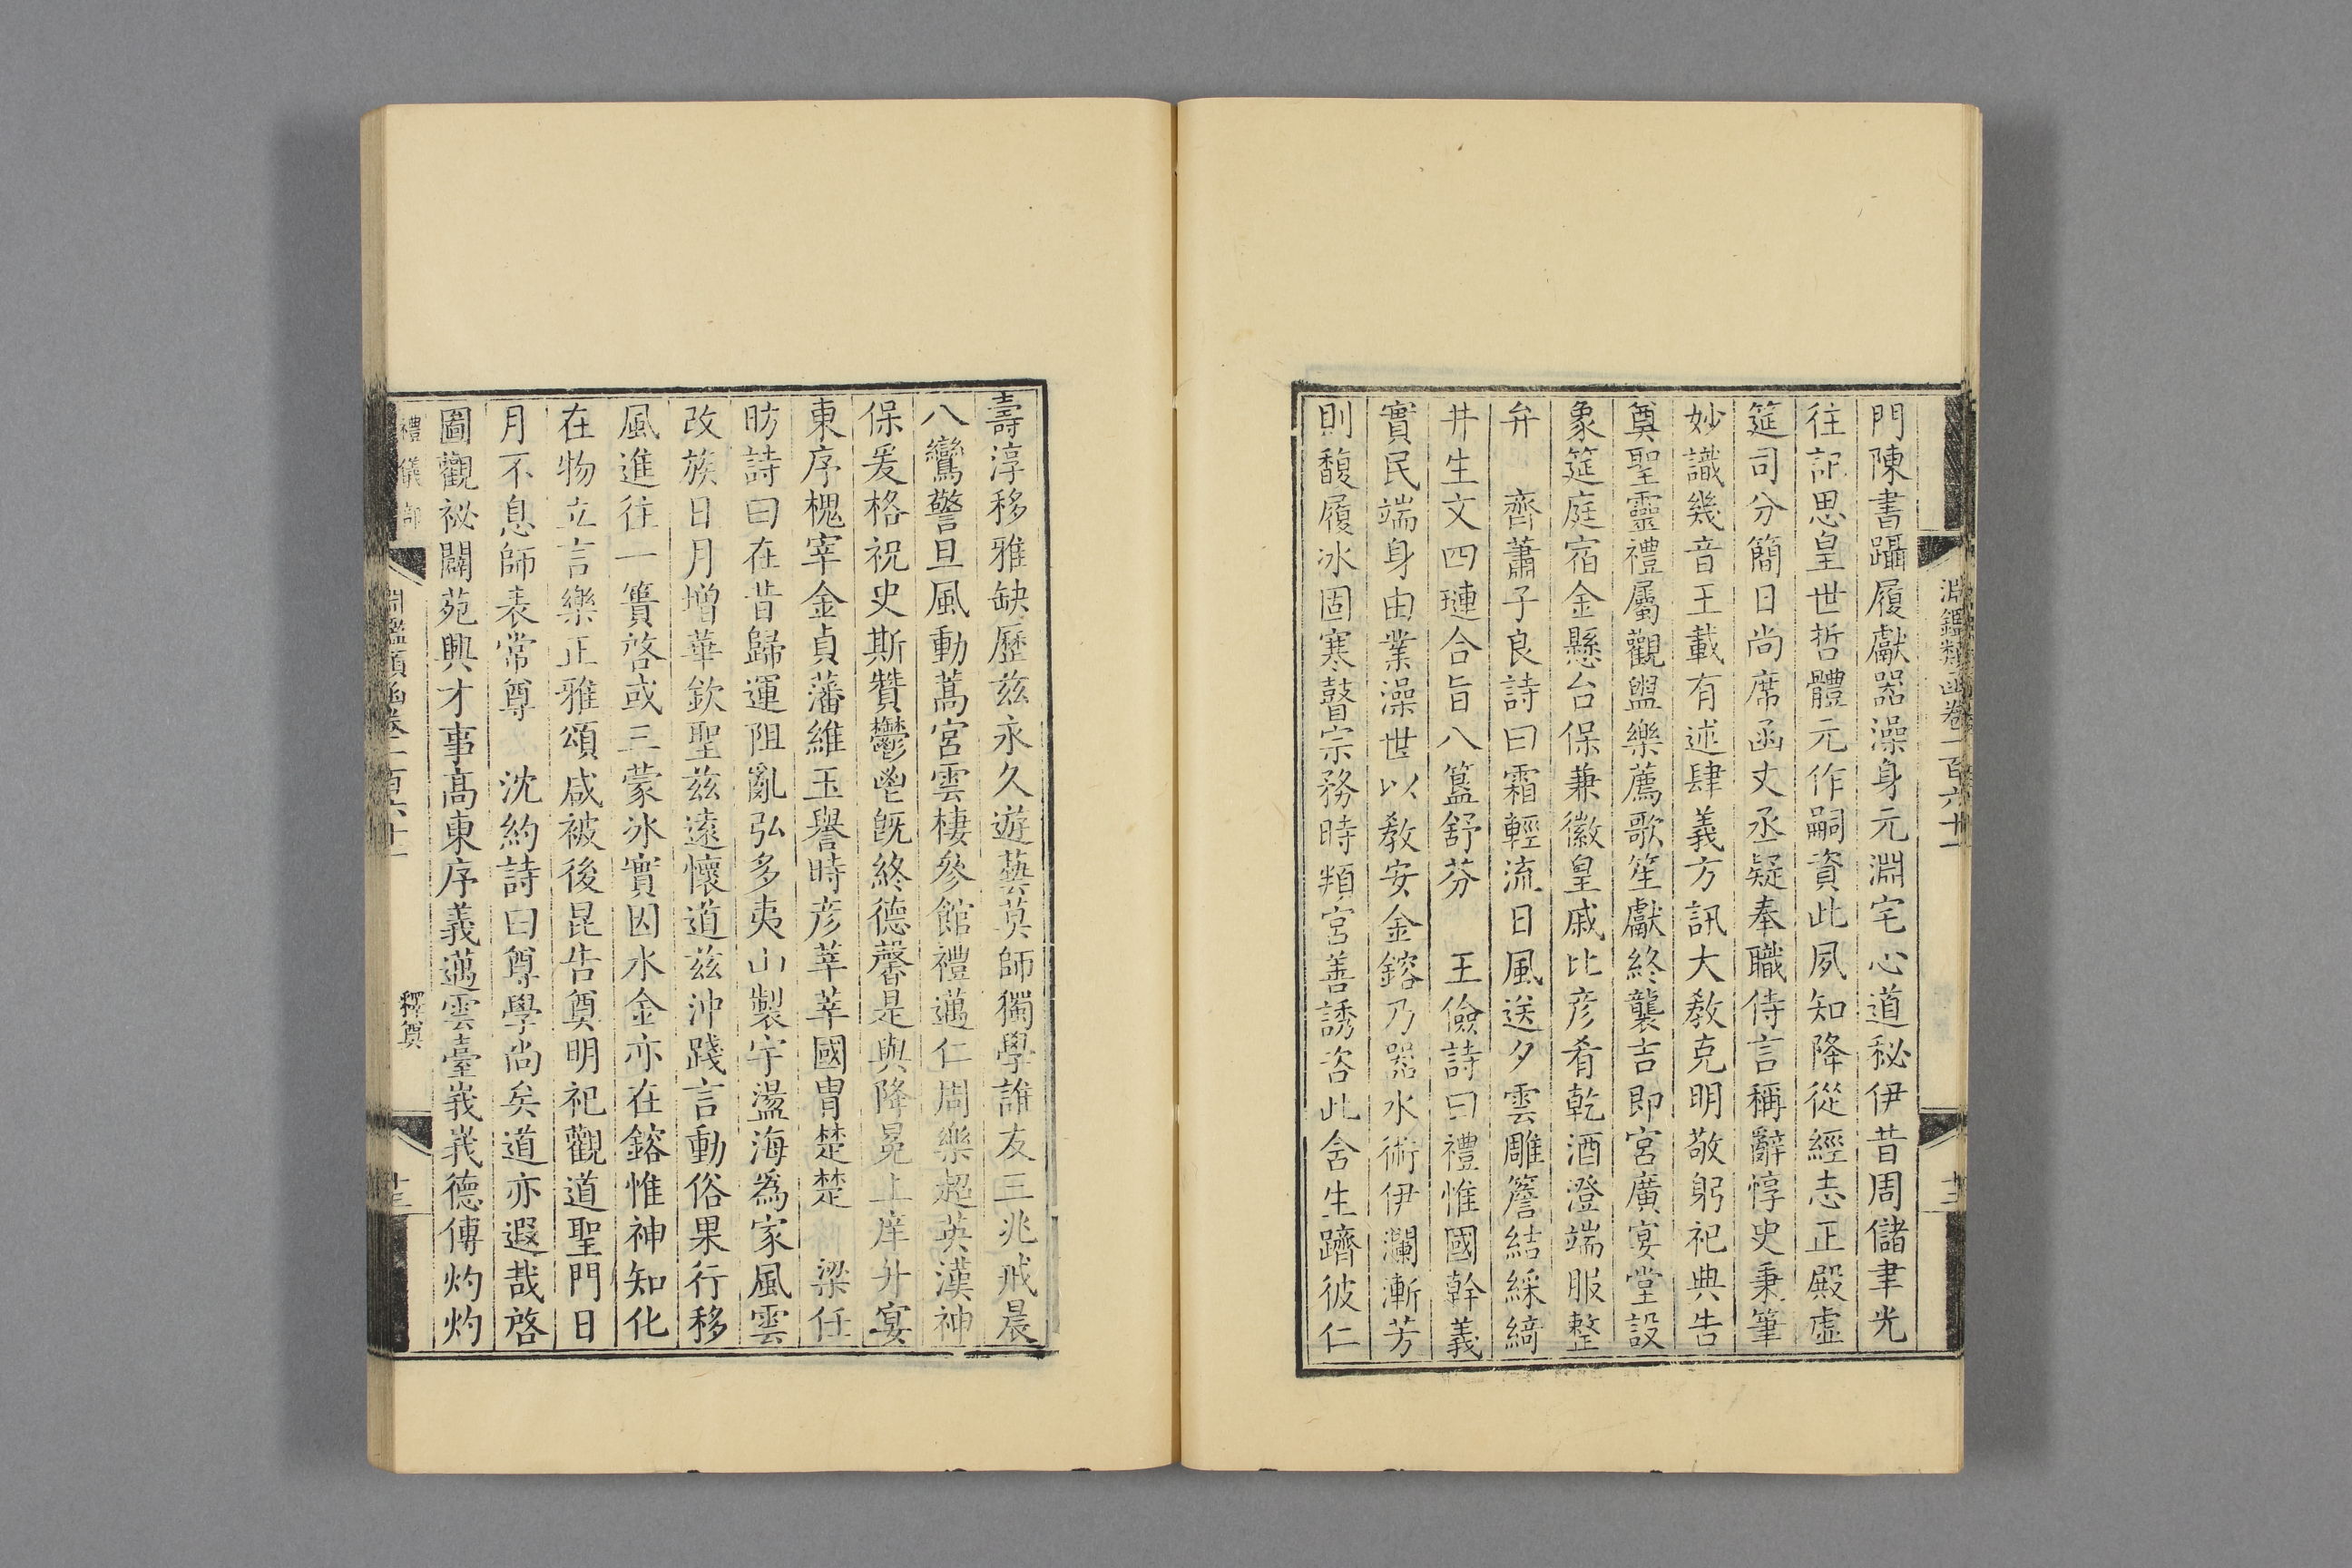 淵鑑類函卷一百六十一
門陳書躡履獻器澡身元淵宅心道秘伊昔周儲聿光
往記思皇世哲體元作嗣資此夙知降從經志正殿虛
筵司分簡日尚席函丈丞疑奉職侍言稱辭惇史秉筆
妙識幾音王載有述肆義方訊大教克明敬躬祀典告
奠聖靈禮屬觀盥樂薦歌笙獻終襲吉即宮廣宴堂設
象筵庭宿金懸台保兼徽皇戚比彦肴乾酒澄端服整
弁　齊蕭子良詩曰霜輕流日風送夕雲雕簷結綵綺
井生文四璉合旨八簋舒芬　王儉詩曰禮惟國幹義
實民端身由業澡世以教安金鎔乃器水術伊瀾漸芳
則馥履冰固寒瞽宗務時頖宮善誘咨此含生躋彼仁
壽淳移雅缺歷茲永久遊藝莫師獨學誰友三兆戒晨
八鸞警旦風動蒿宮雲棲參館禮邁仁周樂超英漢神
保爰格祝史斯贊鬱鬯旣終德馨是與降冕上庠升宴
東序槐宰金貞藩維玉譽時彦莘莘國胄楚楚　梁任
昉詩曰在昔歸運阻亂弘多夷山製宇盪海爲家風雲
改族日月增華欽聖茲遠懷道茲沖踐言動俗果行移
風進往一簣啓或三蒙冰實因水金亦在鎔惟神知化
在物立言樂正雅頌咸被後昆告奠明祀觀道聖門日
月不息師表常尊　沈約詩曰尊學尚矣道亦遐哉啓
圖觀祕闢苑興才事高東序義邁雲臺峩峩德傅灼灼
禮儀部
淵鑑類函卷一百六十一　釋奠